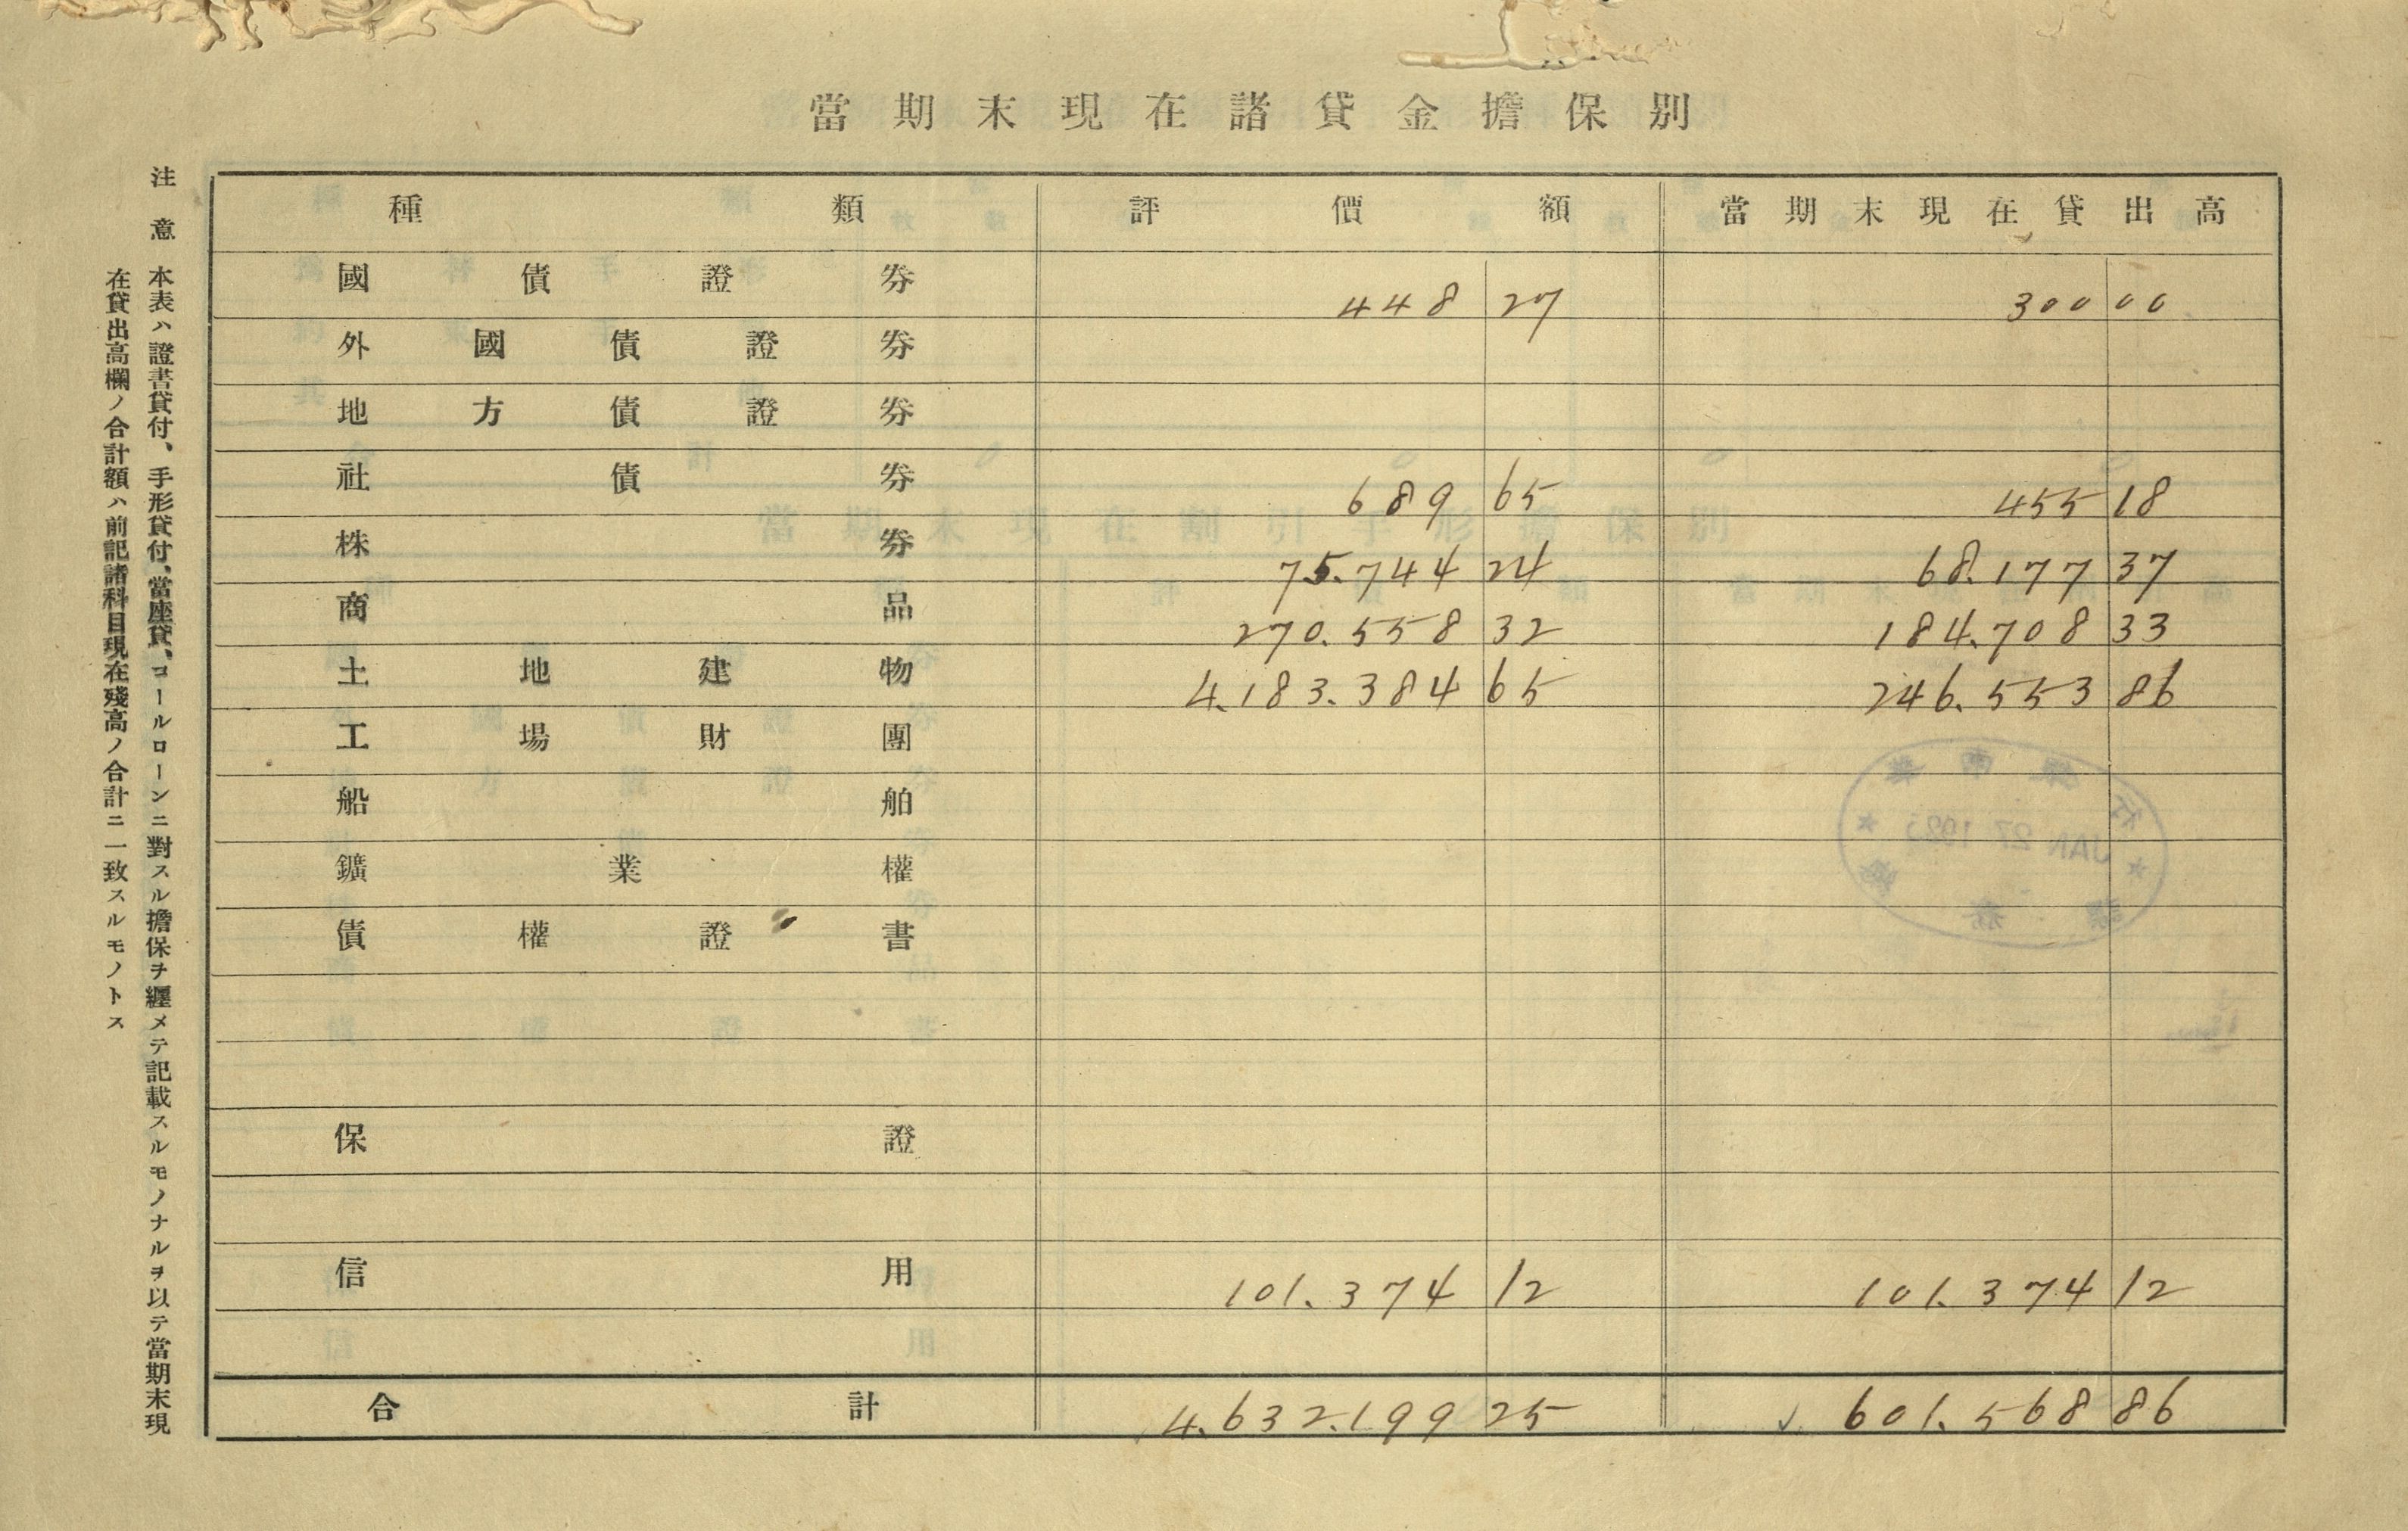 當期末現在諸貸金擔保別
種類 評價額 當期末現在貸出高
國債證券 448 27 300 00
外國債證券
地方債證券
社債券 689 65 455 18
株券 75.744 24 68.177 37
商品 270.558 32 184.708 33
土地建物 4.183.384 65 246.553 86
工場財團
船舶
鑛業權
債權證書
保證
信用 101.374 12 101.374 12
合計 4.632.199 25 601.568 86
注意 本表ハ證書貸付、手形貸付、當座貸、コールローンニ對スル擔保ヲ纒メテ記載スルモノナルヲ以テ當期末現
在貸出高欄ノ合計額ハ前記諸科目現在殘高ノ合計ニ一致スルモノトス
JAN 27 192